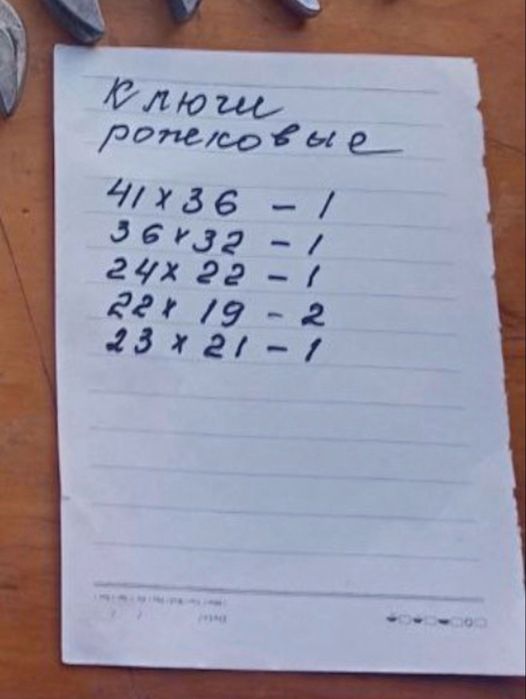 Ключи
рожковые
41 х 36 - 1
36 х 32 - 1
24 х 22 - 1
22 х 19 - 2
23 х 21 - 1